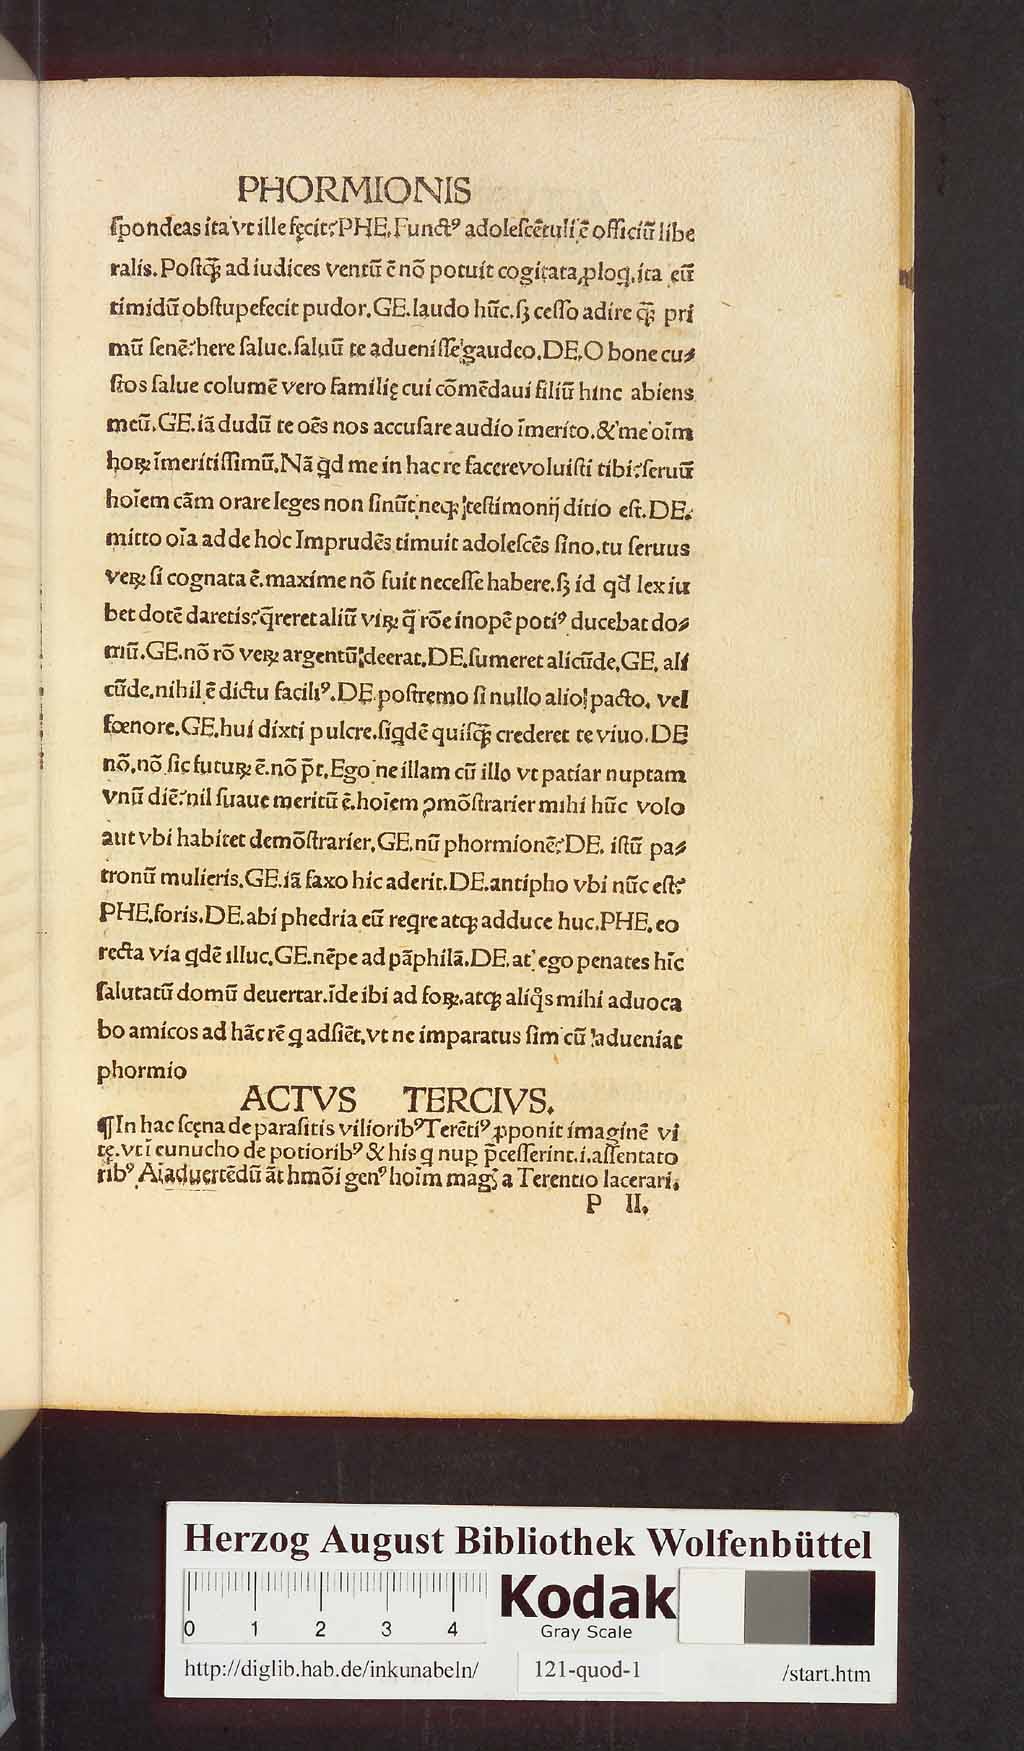 PHORMIONIS
ſpondeas ita vt ille fęcit? PHE. Functꝰ adoleſcētuli ē officiū libe
ralis. Poſtꝙ̄ ad iudices ventū ē nō potuit cogitata ꝓloq̨. ita eū
timidū obſtupefecit pudor. GE. laudo hūc. ſꝫ ceſſo adire ꝙ̄ pri
mū ſenē? here ſalue. ſaluū te adueniſſe gaudeo. DE. O bone cu⸗
ſtos ſalue columē vero familię cui cōmēdaui filiū hinc abiens
meū. GE. iā dudū te oēs nos accuſare audio īmerito. & me oīm
hoꝝ īmeritiſſimū. Nā qd me in hac re facere voluiſti tibi? ſeruū
hoīem cām orare leges non ſinūt neqꝫ teſtimonij ditio eſt. DE.
mitto oīa adde hoc Imprudēs timuit adoleſcēs ſino. tu ſeruus
veꝝ ſi cognata ē. maxime nō fuit neceſſe habere. ſꝫ id qd̄ lex iu
bet dotē daretis? q̄reret aliū viꝝ q̄ rōe inopē potiꝰ ducebat do⸗
mū. GE. nō rō veꝝ argentū deerat. DE. ſumeret alicūde. GE. ali
cūde. nihil ē dictu faciliꝰ. DE. poſtremo ſi nullo alio pacto. vel
fœnore. GE. hui dixti pulcre. ſiqdē quiſꝙ̄ crederet te viuo. DE
nō. nō ſic futuꝝ ē. nō p̄t. Ego ne illam cū illo vt patiar nuptam
vnū diē? nil ſuaue meritū ē. hoīem ꝯmōſtrarier mihi hūc volo
aut vbi habitet demōſtrarier. GE. nū phormionē? DE. iſtū pa⸗
tronū mulieris. GE. iā faxo hic aderit. DE. antipho vbi nūc eſt?
PHE. foris. DE. abi phedria eū reqre atqꝫ adduce huc. PHE. eo
recta via qdē illuc. GE. nēpe ad pāphilā. DE. at ego penates hīc
ſalutatū domū deuertar. īde ibi ad foꝝ. atqꝫ aliq̄s mihi aduoca
bo amicos ad hāc rē q adſiēt. vt ne imparatus ſim cū adueniat
phormio
ACTVS TERCIVS.
¶In hac ſcęna de paraſitis vilioribꝰ Terētiꝰ ꝓponit imaginē vi
tę. vt ī eunucho de potioribꝰ & his q nuꝑ p̄ceſſerint. i. aſſentato
ribꝰ. Aīaduertēdū āt hmōi genꝰ hoīm magꝭ a Terentio lacerari.
P II.
Herzog August Bibliothek Wolfenbüttel
0 1 2 3 4
Kodak
Gray Scale
http://diglib.hab.de/inkunabeln/ 121-quod-1 /start.htm